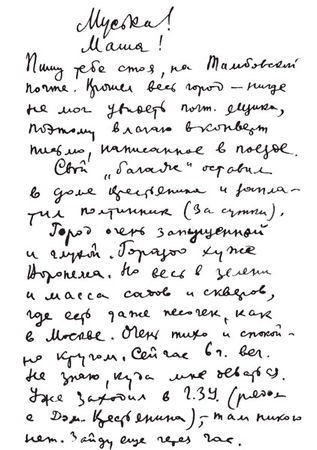 Муська!
Маша!
Пишу тебе стоя, на Тамбовской
почте. Прошел весь город — нигде
не мог увидеть почт. ящика,
поэтому влагаю в конверт
письмо, написанное в поезде.
Свой „багаж" оставил
в доме крестьянина и запла-
тил полтинник (за сутки).
Город очень запущенный
и глухой. Гораздо хуже
Воронежа. Но весь в зелени
и масса садов и скверов,
где есть даже песочек, как
в Москве. Очень тихо и спокой-
но кругом. Сейчас 6 ч. веч.
Не знаю, куда мне деваться.
Уже заходил в ГЗУ (рядом
с Дом. Крестьянина), — там никого
нет. Зайду еще через час.